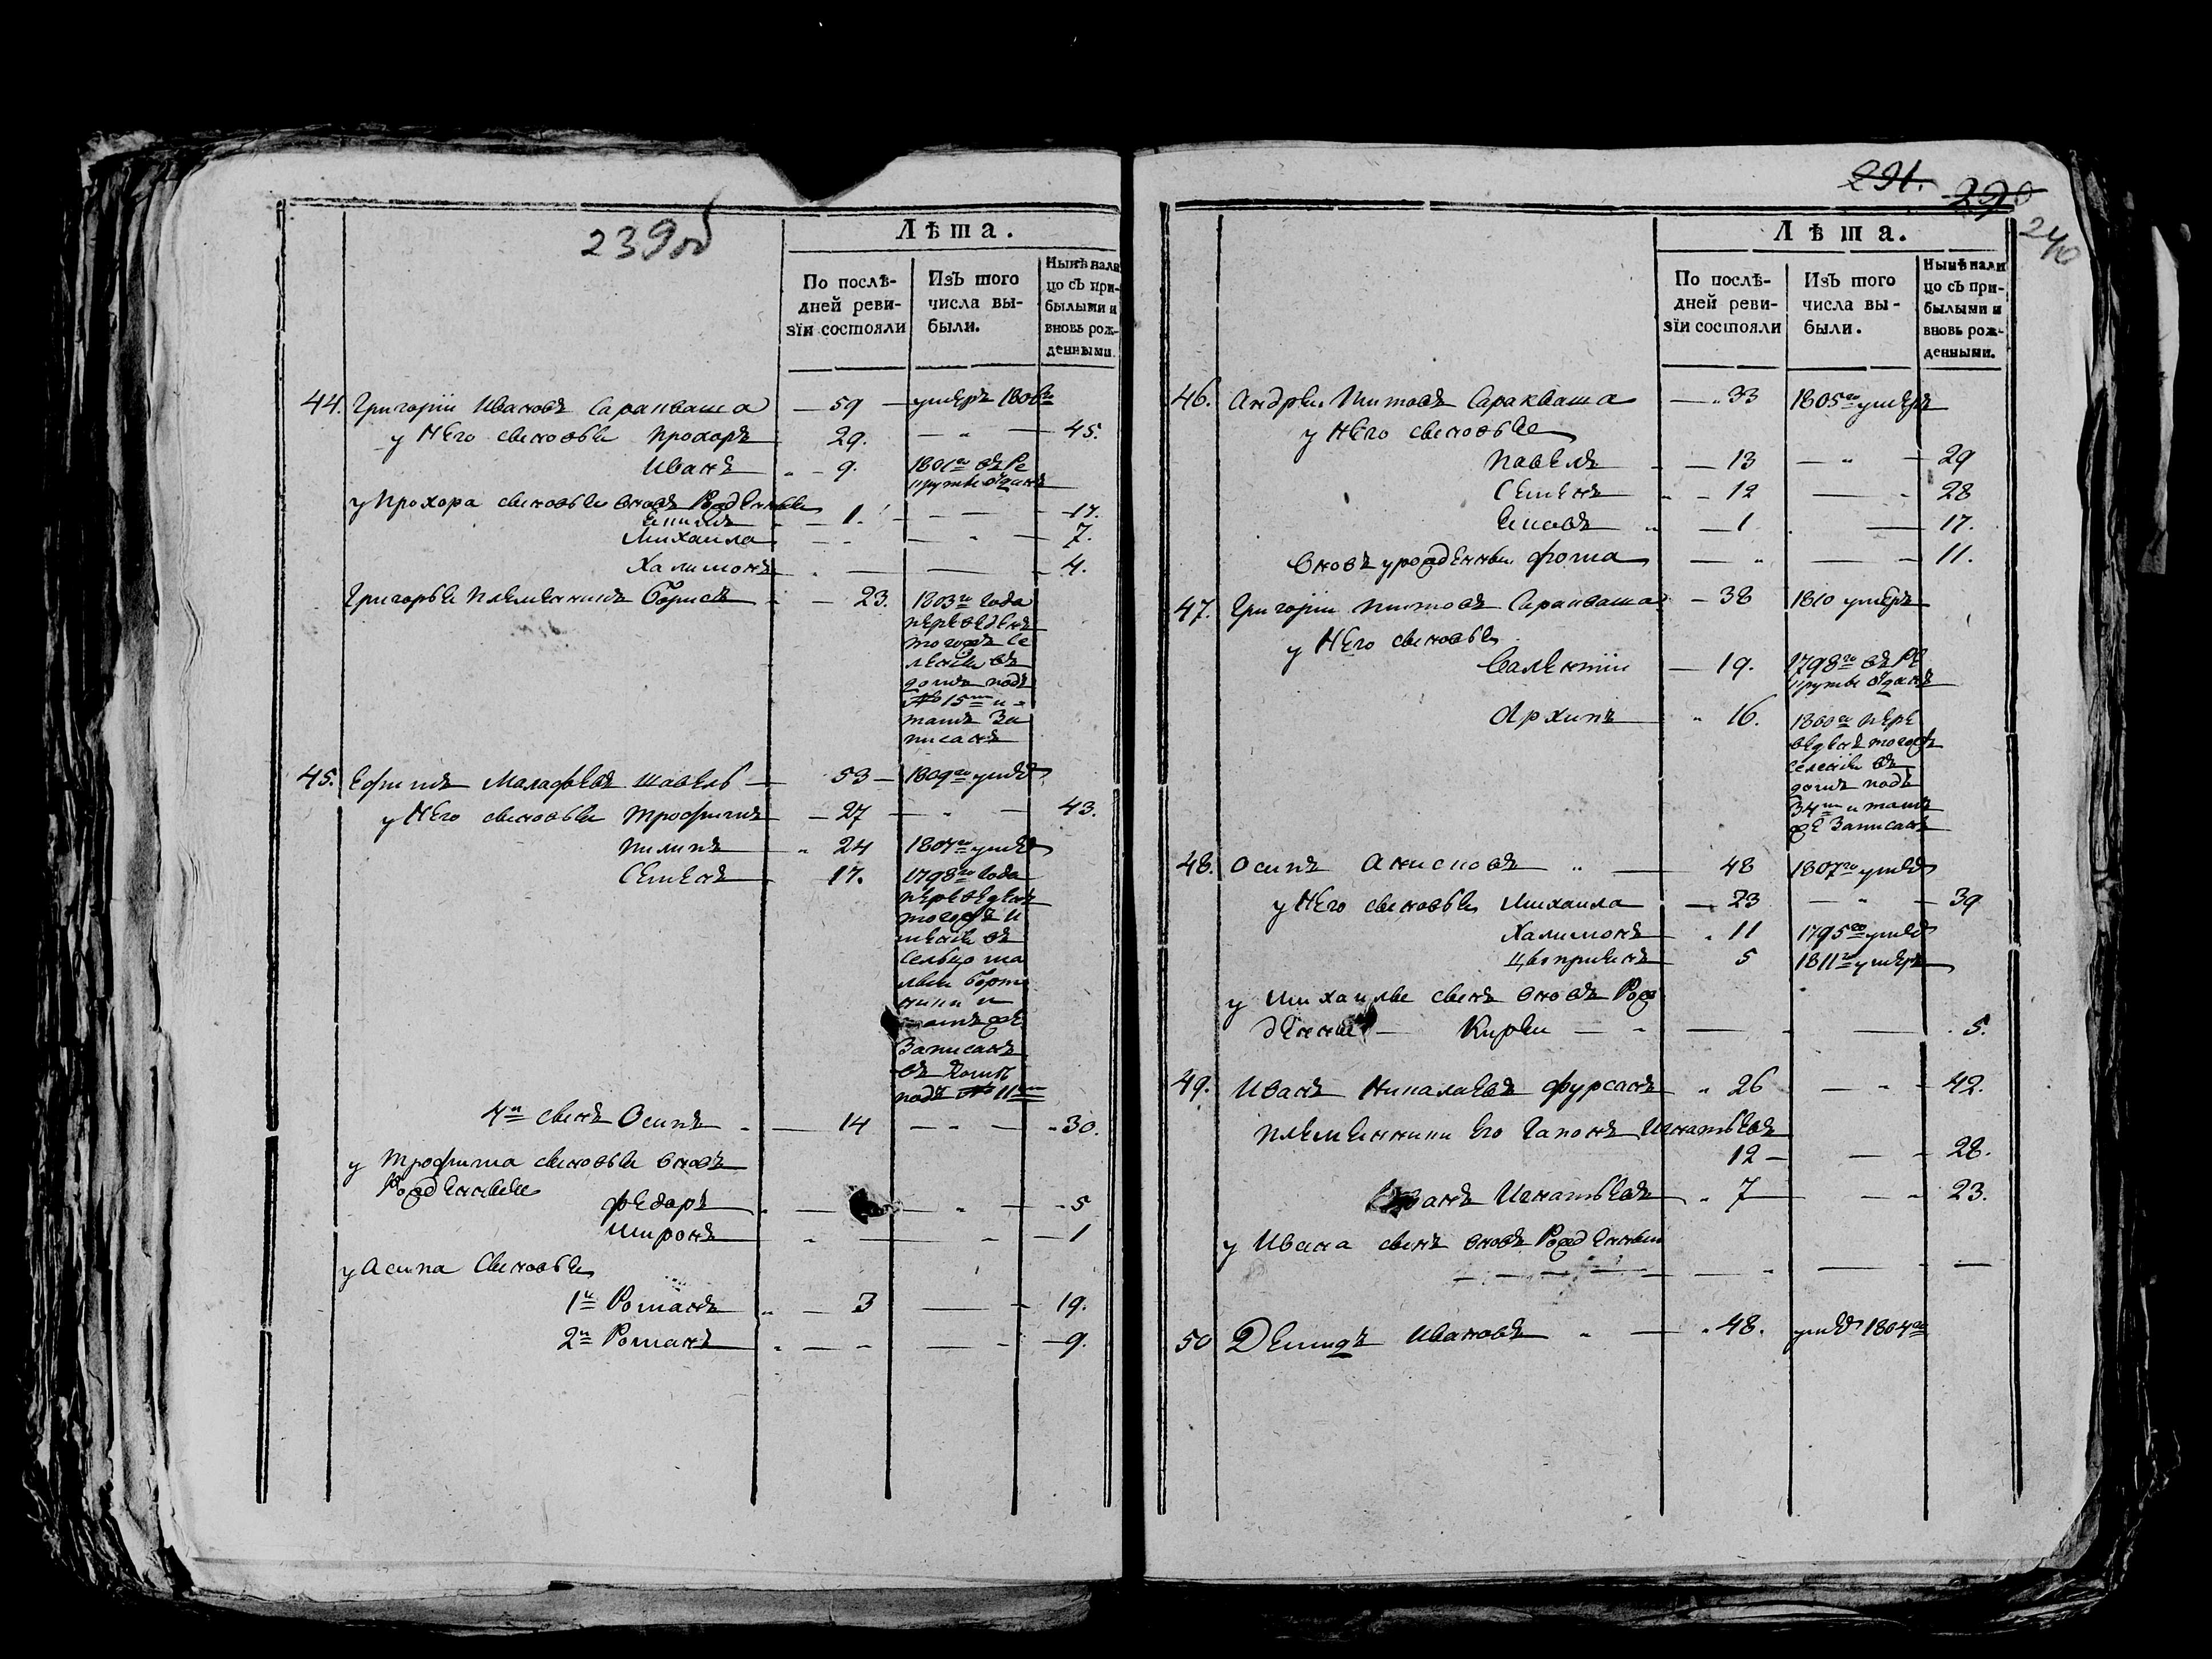 239об
Лѣта.
По послѣ-
дней реви-
зїи состояли
Изъ того
числа вы-
были.
Нынѣ нали
цо съ при-
былыми и
вновь рож-
денными.
44. Григории Ивановъ Саракваша — 59 — умеръ 1806го
у него сыновьи прохоръ 29. — " — 45.
Иванъ " — 9. 1801го въ Ре
круты отданъ
у Прохора сыновьи вновь Рожденныи
Екимъ — 1. — — — 17.
Михаила — " — " — 7.
Халимонъ " — — 4.
Григорьи племянникъ борисъ — 23. 1803го года
переведенъ
тогожъ се
лении въ
домъ подъ
№ 15м и
тамъ За
писанъ
45. Ефимъ Малафеевъ шавель — 53 — 1809го умеръ
у него сыновьи трофимъ — 27 — " — 43.
пилипъ " 24 1804го умеръ
Семенъ 17. 1798го года
переведенъ
тогожъ и
мении въ
сельцо ма
лыи борт
ники и
тамъ же
Записанъ
въ домъ
подъ № 11м
4й сынъ Осипъ " — 14 — " — " 30.
у Трофима сыновьи вновь
Рожденныи
федаръ " — " — 5
миронъ " — " — 1
у Асипа сыновьи
1й Романъ " — 3 — — 19.
2й Романъ " — — " — — 9.
291. 290
240
Лѣта.
По послѣ-
дней реви-
зїи состояли
Изъ того
числа вы-
были.
Нынѣ нали
цо съ при-
былыми и
вновь рож-
денными.
46. Андреи Титовъ Саракваша — " 33 1805го умеръ
у него сыновьи
павелъ — — 13 — " — 29
Семенъ " — 12 — " 28
Есиовъ " — 1 — 17.
вновь урожденныи фома — " — — 11.
47. Григории титовъ Саракваша — 38 1810 умеръ
у него сыновьи
Валентии — 19. 1798го въ Ре
круты отданъ
Архипъ " 16. 1800го пере
веденъ тогожъ
селении въ
домъ подъ
34м и тамъ
же Записанъ
48. Осипъ Анисковъ " — 48 1807го умеръ
у него сыновьи Михаила — 23 — " — 39
Халимонъ " 11 1795го умеръ
5 1811го умеръ
у михаилы сынъ вновь Рож
денныи — Кирѣи — " — — " 5.
49. Иванъ Никалаевъ фурсанъ " 26 — " — 42.
племянники Его Гапонъ Игнатьевъ
12 — — 28.
Иванъ Игнатьевъ " 7 — " 23.
у Ивана сынъ вновь Рожденныи
— — — — — — " — — —
50 Демидъ Ивановъ " — " 48. умеръ 1804го